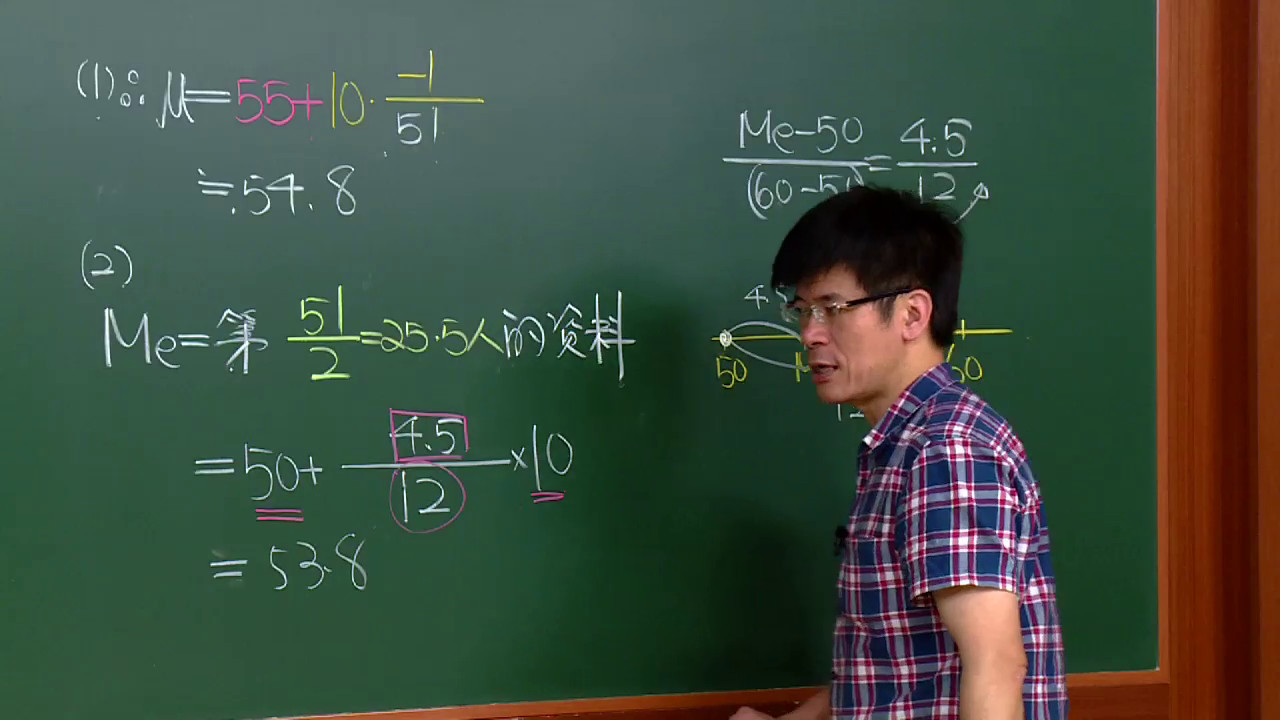 (1)∴ μ=55+10·-1/51
≒54.8
(2)
Me=第 51/2=25.5人的资料
=50+ 4.5/12 ×10
=53.8
Me-50/(60-50)=4.5/12
4.5
50
60
12